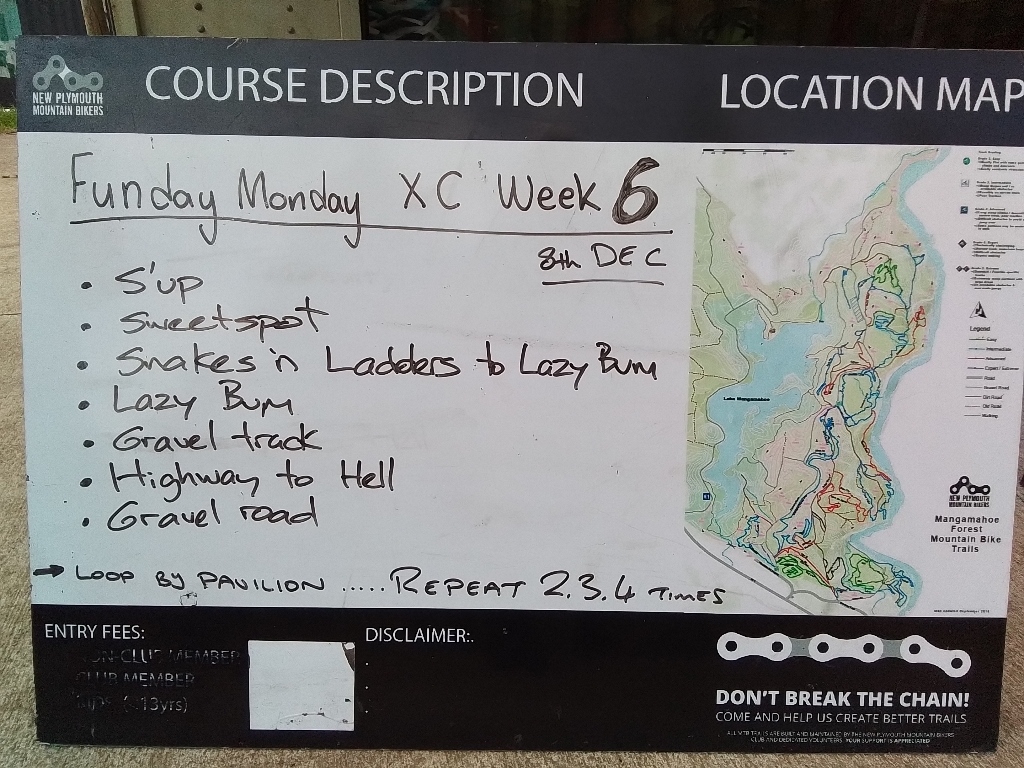 NEW PLYMOUTH
MOUNTAIN BIKERS
COURSE DESCRIPTION
LOCATION MAP
Funday Monday XC Week 6
8th DEC
• S'up
• Sweetspot
• Snakes in Ladders to Lazy Bum
• Lazy Bum
• Gravel track
• Highway to Hell
• Gravel road
→ LOOP BY PAVILION ..... REPEAT 2.3.4 TIMES
Lake Mangamahoe
Legend
NEW PLYMOUTH
MOUNTAIN BIKERS
Mangamahoe
Forest
Mountain Bike
Trails
ENTRY FEES:
NON-CLUB MEMBER
CLUB MEMBER
KIDS (<13yrs)
DISCLAIMER:.
DON'T BREAK THE CHAIN!
COME AND HELP US CREATE BETTER TRAILS
ALL MTB TRAILS ARE BUILT AND MAINTAINED BY THE NEW PLYMOUTH MOUNTAIN BIKERS
CLUB AND DEDICATED VOLUNTEERS. YOUR SUPPORT IS APPRECIATED